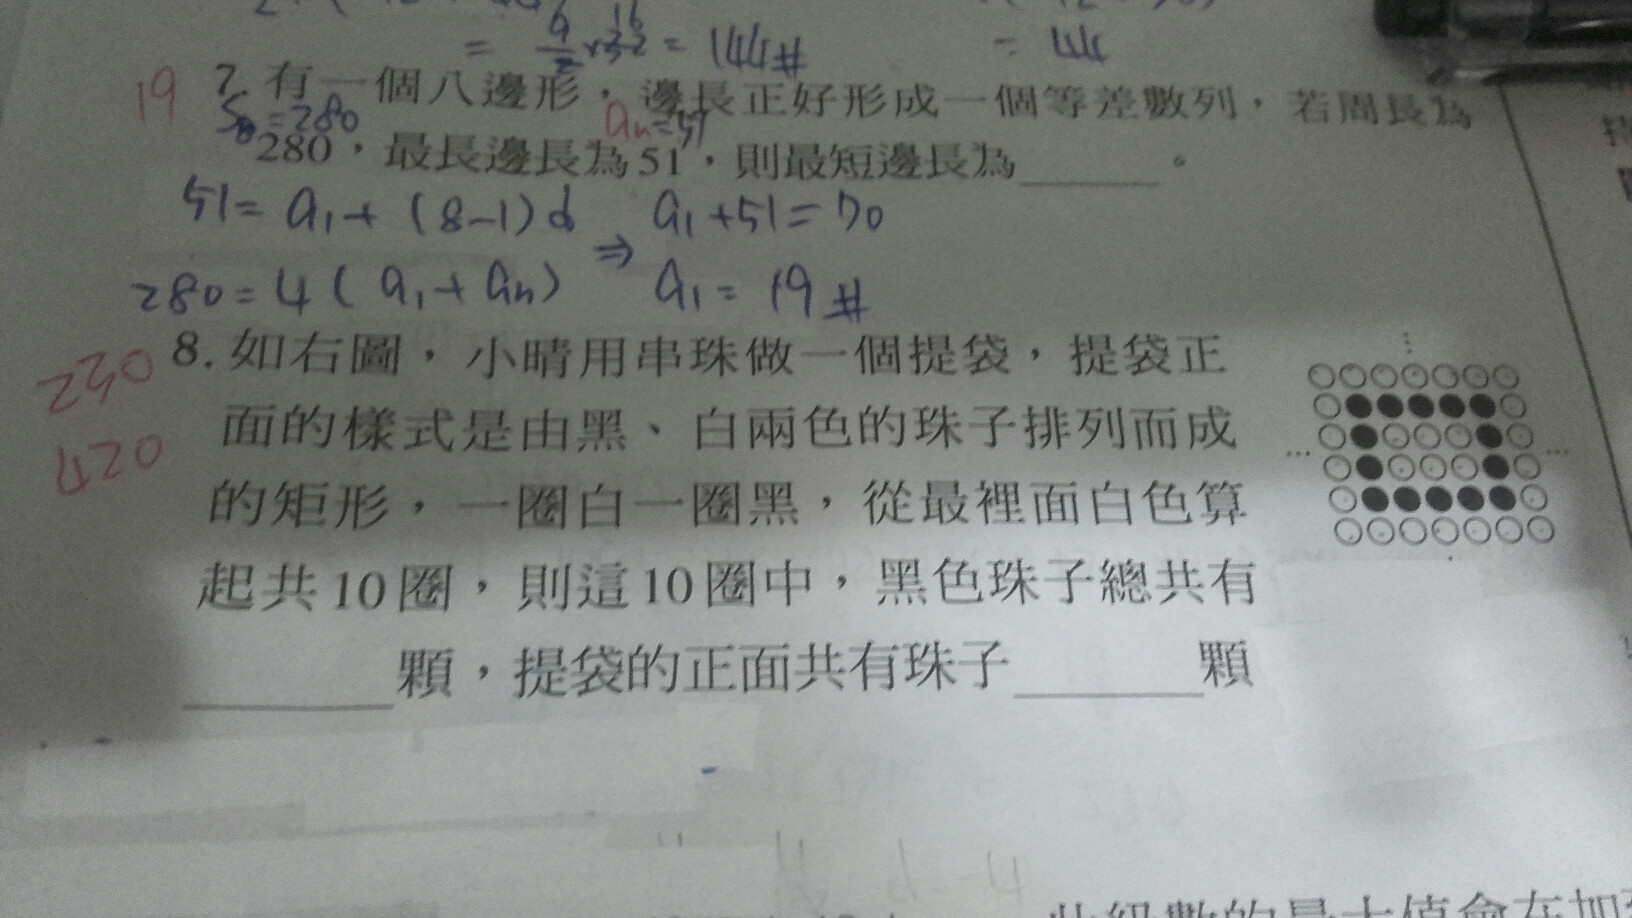 = 9/2 × 32 16 = 144#
= 44
19 7. 有一個八邊形，邊長正好形成一個等差數列，若周長為
S₈=280 aₙ=51
280，最長邊長為51，則最短邊長為______。
51= a₁+ (8-1)d a₁+51=70
⇒
280=4( a₁+aₙ) a₁= 19#
230 8. 如右圖，小晴用串珠做一個提袋，提袋正
420 面的樣式是由黑、白兩色的珠子排列而成
的矩形，一圈白一圈黑，從最裡面白色算
起共10圈，則這10圈中，黑色珠子總共有
______顆，提袋的正面共有珠子______顆